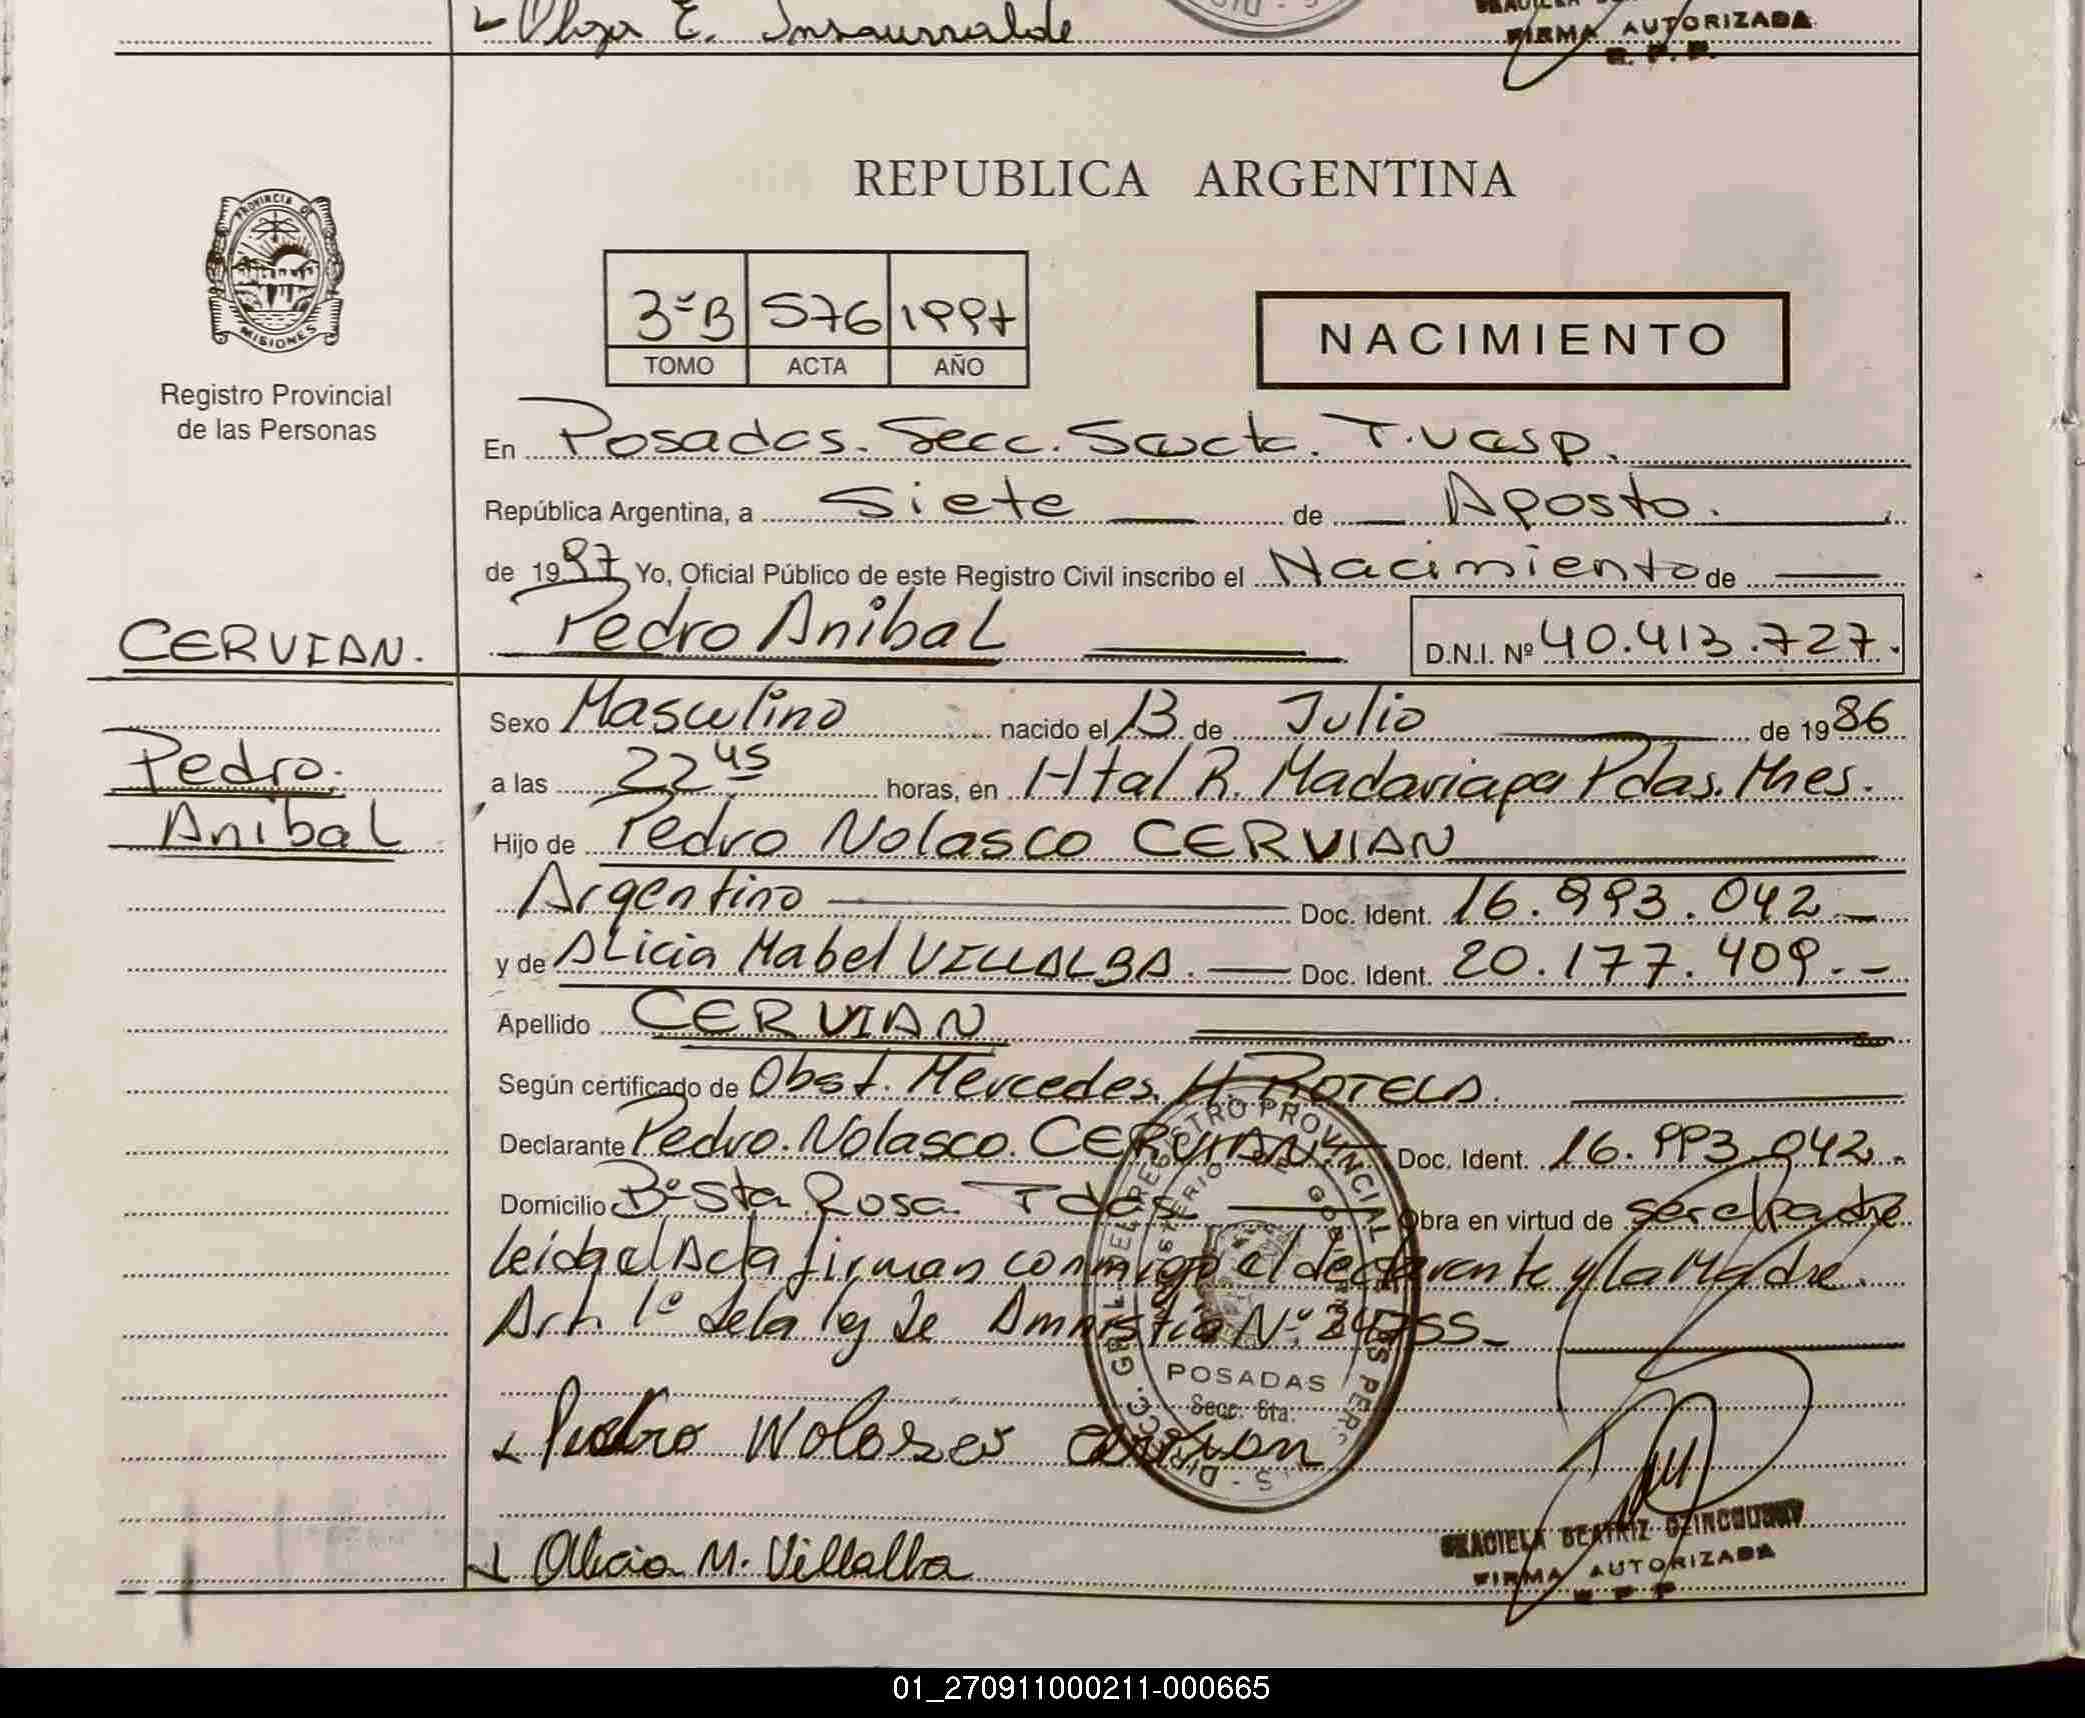 Olga E. Insaurralde
FIRMA AUTORIZADA
R. P. P.
REPUBLICA ARGENTINA
PROVINCIA DE
MISIONES
Registro Provincial
de las Personas
3ºB 576 1997
TOMO ACTA AÑO
NACIMIENTO
En Posadas. Secc. Sexta. T. Vesp.
República Argentina, a siete de Agosto.
de 1997 Yo, Oficial Público de este Registro Civil inscribo el Nacimiento de
CERVIAN.
Pedro Anibal
D.N.I. Nº 40.413.727.
Pedro.
Anibal
Sexo Masculino nacido el 13 de Julio de 1986
a las 22 45 horas, en Htal R. Madariaga Pdas. Mnes.
Hijo de Pedro Nolasco CERVIAN
Argentino Doc. Ident. 16.993.042
y de Alicia Mabel VILLALBA. Doc. Ident. 20.177.409.-
Apellido CERVIAN
Según certificado de Obst. Mercedes. H. ROTELA.
Declarante Pedro. Nolasco. CERVIAN. Doc. Ident. 16.993.042.
Domicilio Bº Sta Rosa. Pdas Obra en virtud de ser el padre
leida el Acta firman conmigo el declarante y la Madre.
Art. 1º de la ley de Amnistia Nº 24755
DIRECC. GRAL. DEL REGISTRO PROVINCIAL
POSADAS
Secc. 6ta.
Pedro Cervian
Alicia M. Villalba
GRACIELA BEATRIZ
FIRMA AUTORIZADA
R P P
01_270911000211-000665